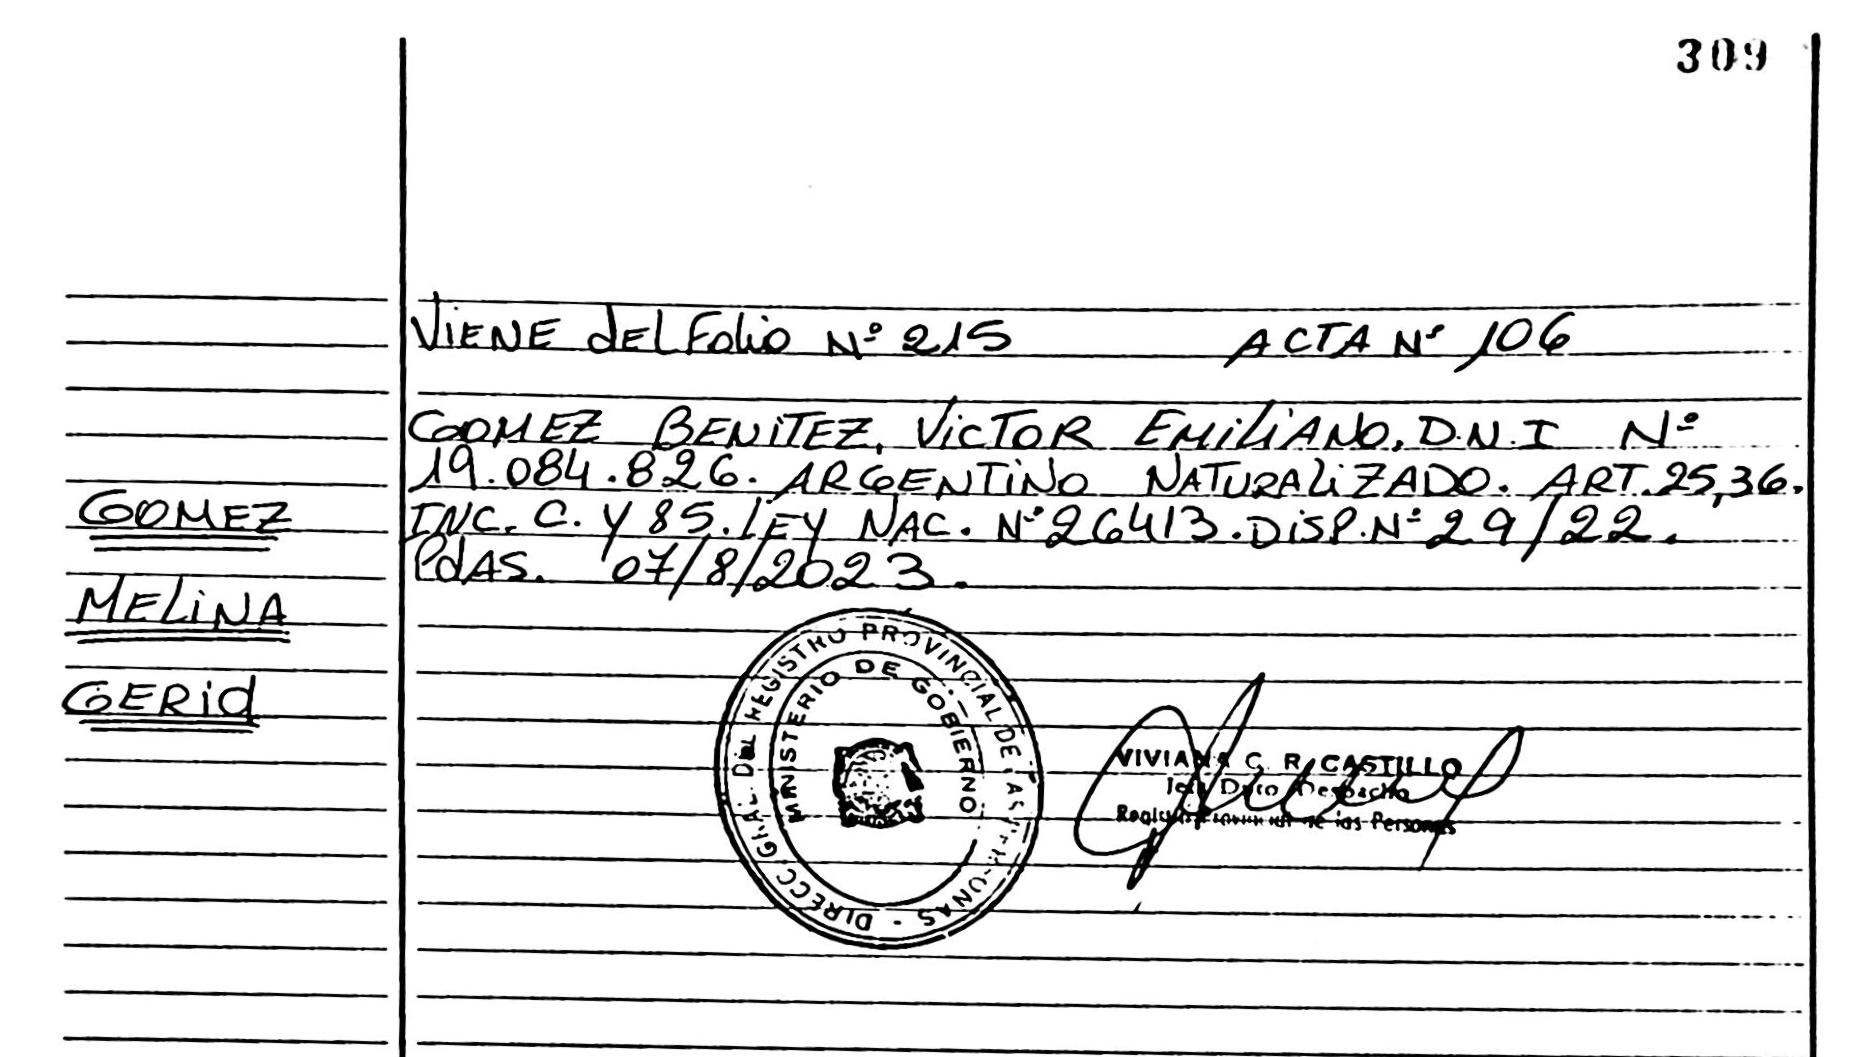 309
VIENE del Folio Nº 215 ACTA Nº 106
GOMEZ BENITEZ, VICTOR EMILIANO. D.N.I Nº
19.084.826. ARGENTINO NATURALIZADO. ART. 25,36.
INC. C. Y 85. LEY NAC. Nº 26413. DISP. Nº 29/22.
PdAS. 07/8/2023.
GOMEZ
MELINA
GERId
DIRECC. GRAL. DEL REGISTRO PROVINCIAL DE LAS PERSONAS
MINISTERIO DE GOBIERNO
VIVIANA C. R. CASTILLO
Dpto Despacho
de las Personas